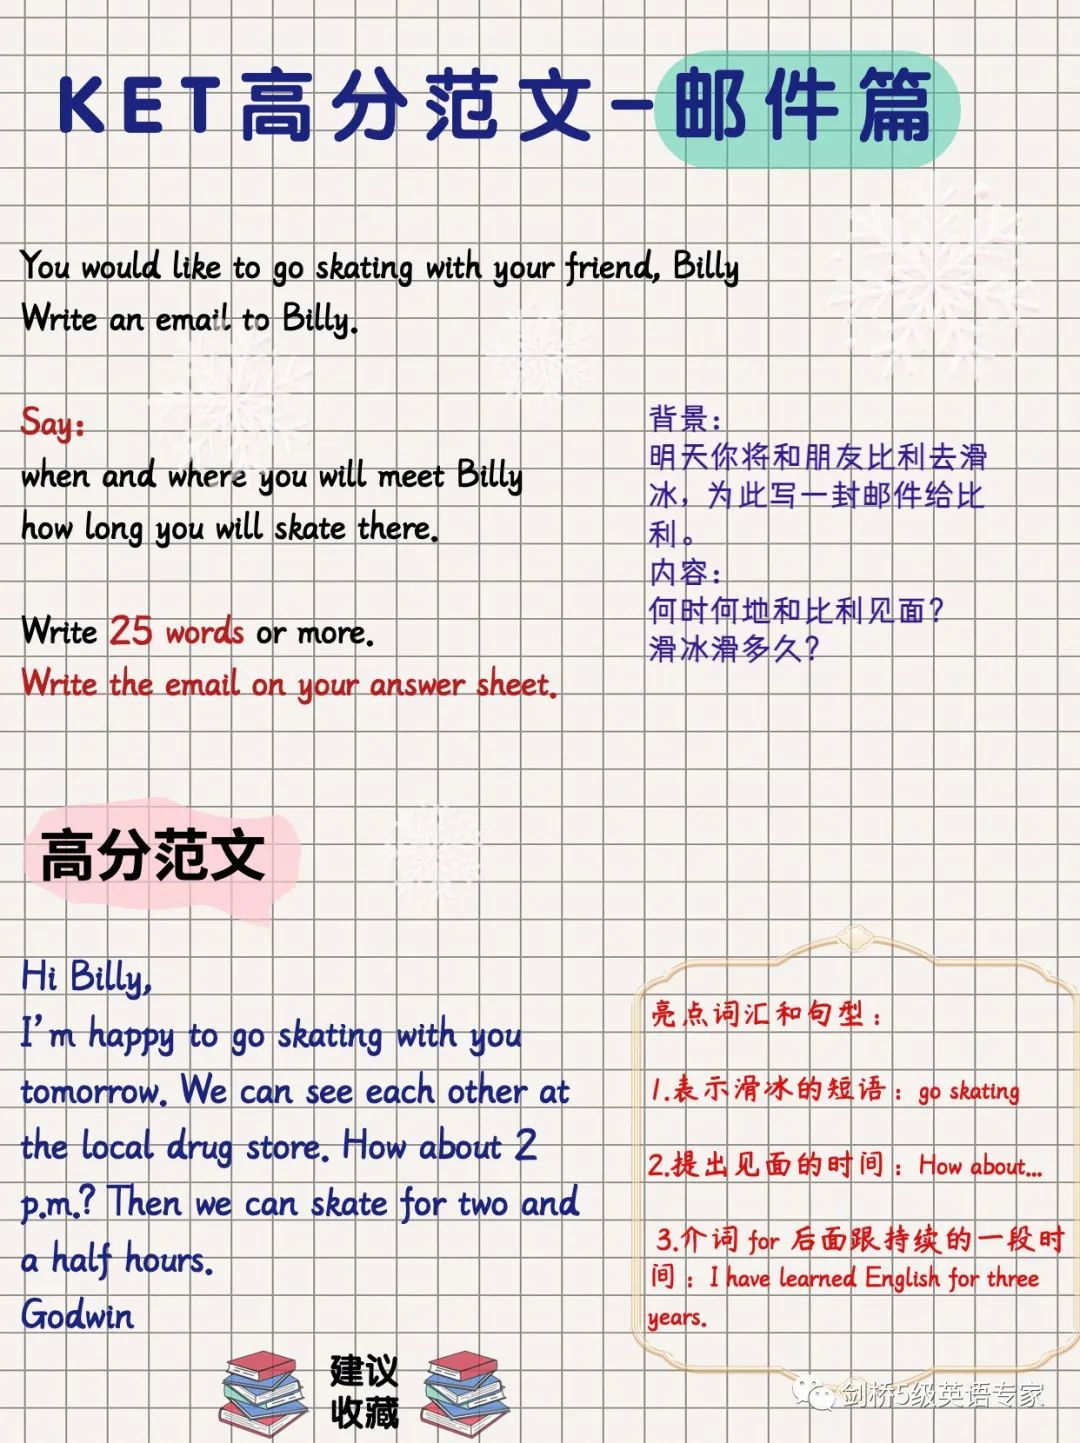 KET高分范文-邮件篇
You would like to go skating with your friend, Billy
Write an email to Billy.
Say:
when and where you will meet Billy
how long you will skate there.
Write 25 words or more.
Write the email on your answer sheet.
背景：
明天你将和朋友比利去滑
冰，为此写一封邮件给比
利。
内容：
何时何地和比利见面？
滑冰滑多久？
高分范文
Hi Billy,
I'm happy to go skating with you
tomorrow. We can see each other at
the local drug store. How about 2
p.m.? Then we can skate for two and
a half hours.
Godwin
亮点词汇和句型：
1.表示滑冰的短语：go skating
2.提出见面的时间：How about...
3.介词 for 后面跟持续的一段时
间：I have learned English for three
years.
建议
收藏
剑桥5级英语专家